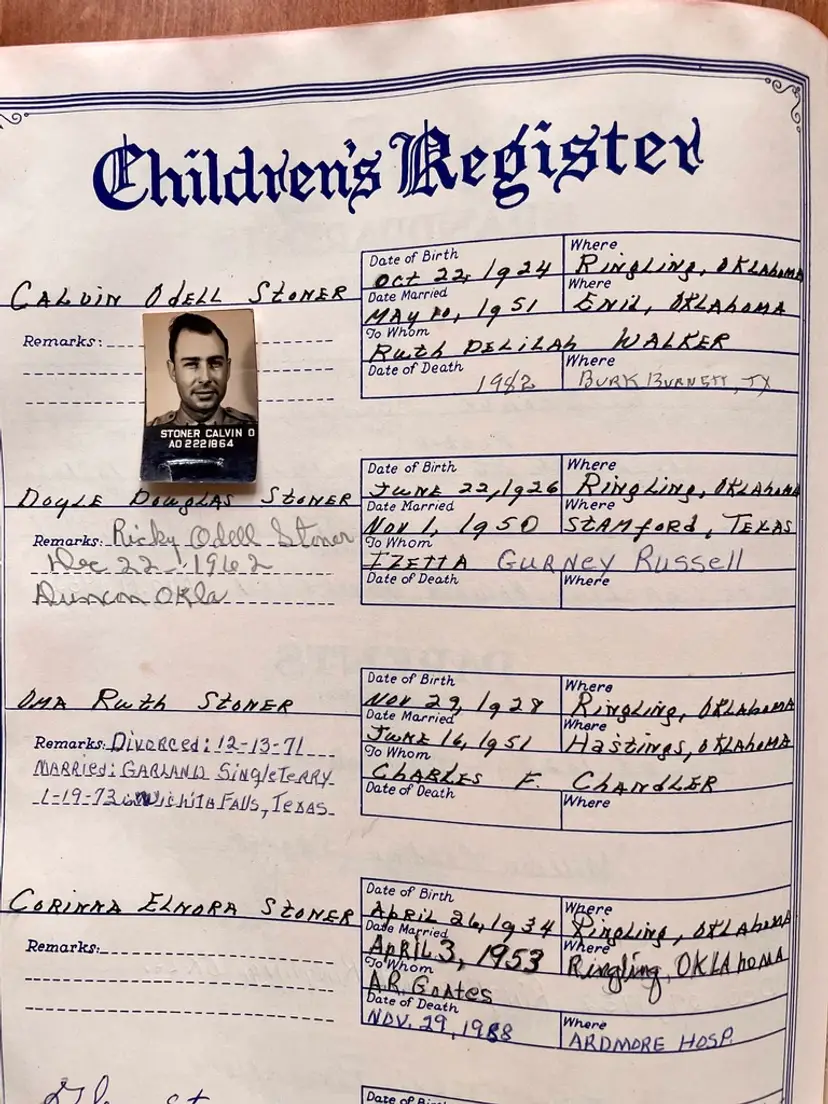 Children's Register
CALVIN ODELL STONER
Date of Birth Where
Oct 22, 1924 Ringling, OKLAhomA
Date Married Where
MAY 20, 1951 ENID, OKLAhomA
To Whom
Ruth DELILAh WALKER
Date of Death Where
1982 BURK BURNETT, TX
Remarks:
STONER CALVIN O
AO 2221864
DOYLE DOUGLAS STONER
Date of Birth Where
JUNE 22, 1926 Ringling, OKLAhomA
Date Married Where
Nov 1, 1950 STAMFORD, TEXAS
To Whom
IZETTA GURNEY RUSSELL
Date of Death Where
Remarks: Ricky Odell Stoner
Dec 22, 1962
Duncan OKla
OMA Ruth STONER
Date of Birth Where
Nov 29, 1928 Ringling, OKLAhomA
Date Married Where
JUNE 16, 1951 Hastings, OKLAhomA
To Whom
CHARLES F. CHANDLER
Date of Death Where
Remarks: Divorced: 12-13-71
MARRIED: GARLAND SingleTERRY
1-19-73 in Wichita Falls, Texas
CORINNA ELNORA STONER
Date of Birth Where
APRIL 26, 1934 Ringling, OKLAhomA
Date Married Where
APRIL 3, 1953 Ringling, OKLAhomA
To Whom
A.R. Coates
Date of Death Where
NOV. 29, 1988 ARDMORE HOSP.
Remarks:
Date of Birth Where